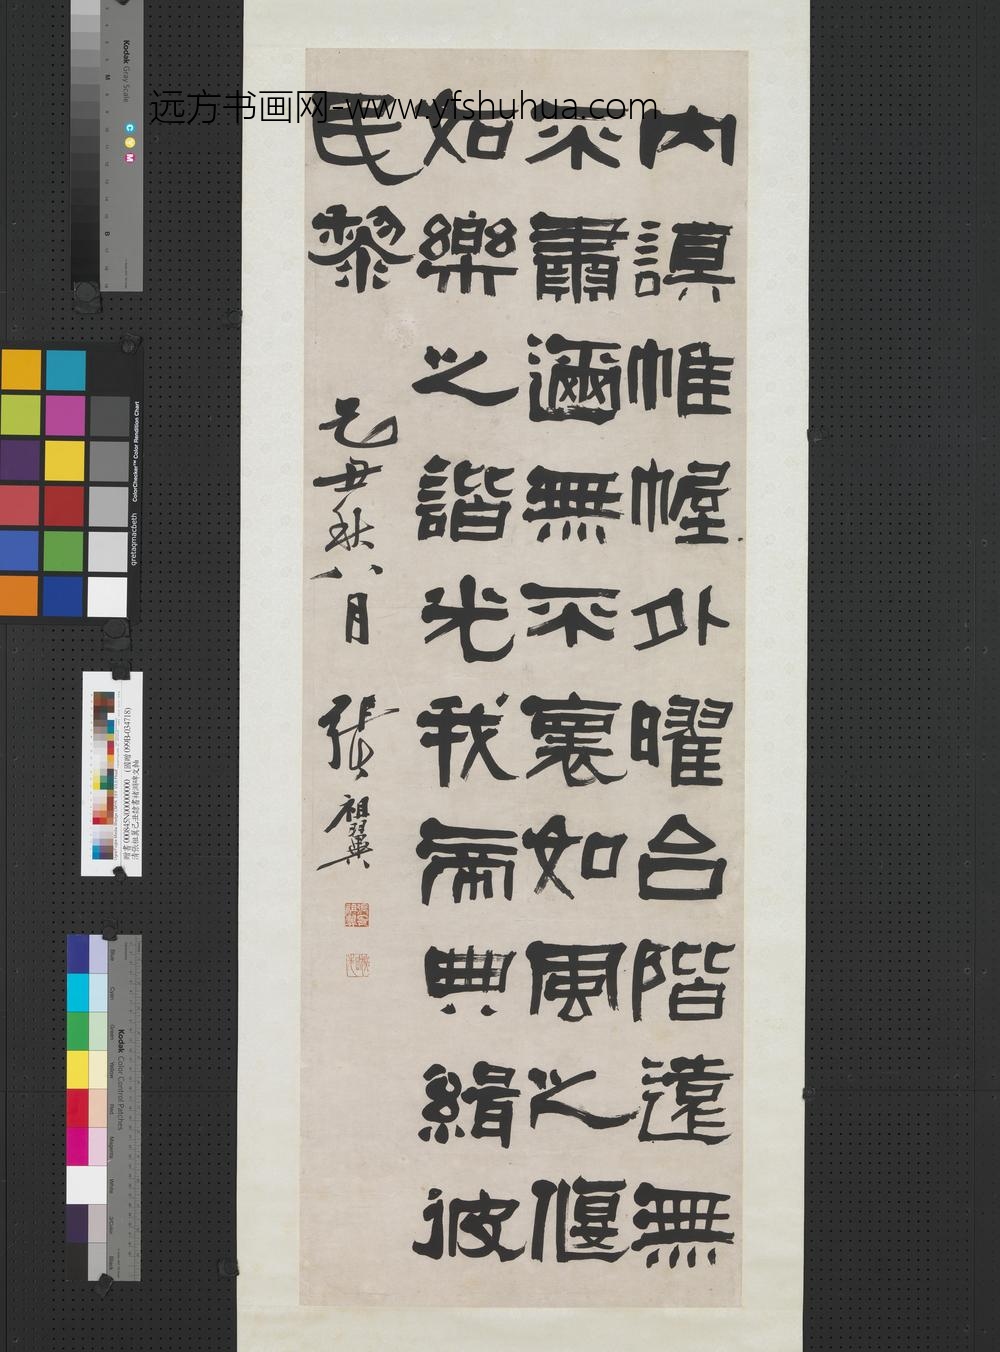 远方书画网-www.yfshuhua.com
內謨帷幄外曜台階遠無
不肅邇無不褱如風之偃
如樂之諧光我帝典緝彼
民黎
己丑秋八月 張祖翼
Kodak Gray Scale
C
Y
M
ColorChecker Color Rendition Chart
gretagmacbeth
Kodak Color Control Patches
Blue
Cyan
Green
Yellow
Red
Magenta
White